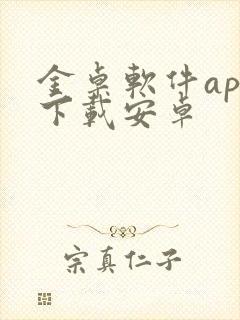 金桌軟件ap
下載安卓
宗真仁子